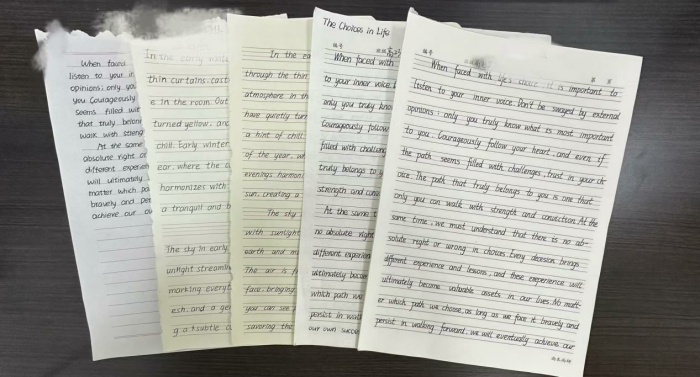 When faced
listen to your in
opinions; only you
you. Courageously
seems filled wit
that truly belon
walk with streng
At the same
absolute right or
different experien
will ultimately
matter which pa
bravely and per
achieve our ow
In the early winte
thin curtains, cast
e in the room. Out
turned yellow, and
chill. Early winter
ear, where the c
harmonizes with
a tranquil and b
The sky in early
unlight streamin
marking everyt
esh, and a ge
g a subtle c
In the ea
through the thin
atmosphere in th
have quietly tur
a hint of chill.
of the year, wh
evenings harmon
sun, creating a
The sky
with sunlight
earth and ma
The air is f
face, bringing
you can see
savoring the
The Choices in Life
编号
When faced with
to your inner voice. D
only you truly know
Courageously follow
filled with challeng
truly belongs to y
strength and conv
At the same t
no absolute right
different experien
ultimately becom
which path we
persist in walk
our own succe
编号
When faced with life's choice, it is important to
listen to your inner voice. Don't be swayed by external
opinions; only you truly know what is most important
to you. Courageously follow your heart, and even if
the path seems filled with challenges, trust in your ch
oice. The path that truly belongs to you is one that
only you can walk with strength and conviction. At the
same time, we must understand that there is no ab-
solute right or wrong in choices. Every decision brings
different experience and lessons, and these experience will
ultimately become valuable assets in our lives. No matt-
er which path we choose, as long as we face it bravely and
persist in walking forward, we will eventually achieve our